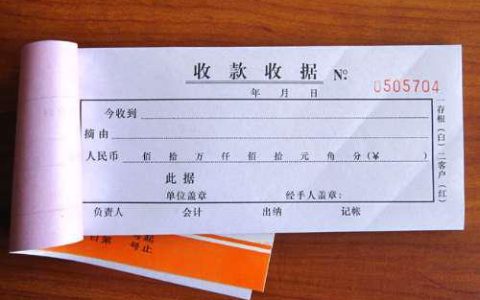 收款收据 №. 0505704
年 月 日
今收到
摘由
人民币 佰 拾 万 仟 佰 拾 元 角 分 (¥ )
此据
单位盖章 经手人盖章:
负责人 会计 出纳 记帐
一存根(白)二客户(红)